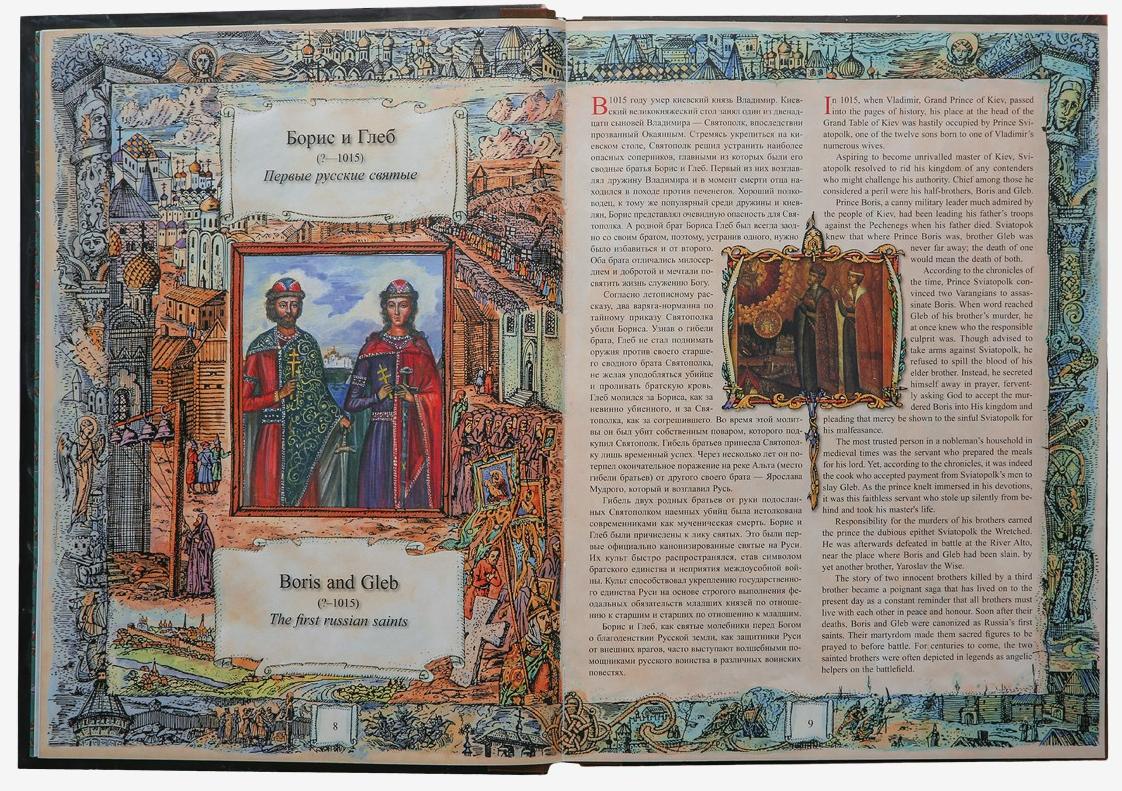 Борис и Глеб
(?–1015)
Первые русские святые
Boris and Gleb
(?–1015)
The first russian saints
8
В 1015 году умер киевский князь Владимир. Киев-
ский великокняжеский стол занял один из двенад-
цати сыновей Владимира — Святополк, впоследствии
прозванный Окаянным. Стремясь укрепиться на ки-
евском столе, Святополк решил устранить наиболее
опасных соперников, главными из которых были его
сводные братья Борис и Глеб. Первый из них возглав-
лял дружину Владимира и в момент смерти отца на-
ходился в походе против печенегов. Хороший полко-
водец, к тому же популярный среди дружины и киев-
лян, Борис представлял очевидную опасность для Свя-
тополка. А родной брат Бориса Глеб был всегда заод-
но со своим братом, поэтому, устранив одного, нужно
было избавиться и от второго.
Оба брата отличались милосер-
дием и добротой и мечтали по-
святить жизнь служению Богу.
Согласно летописному рас-
сказу, два варяга-норманна по
тайному приказу Святополка
убили Бориса. Узнав о гибели
брата, Глеб не стал поднимать
оружия против своего старше-
го сводного брата Святополка,
не желая уподобляться убийце
и проливать братскую кровь.
Глеб молился за Бориса, как за
невинно убиенного, и за Свя-
тополка, как за согрешившего. Во время этой молит-
вы он был убит собственным поваром, которого под-
купил Святополк. Гибель братьев принесла Святопол-
ку лишь временный успех. Через несколько лет он по-
терпел окончательное поражение на реке Альта (место
гибели братьев) от другого своего брата — Ярослава
Мудрого, который и возглавил Русь.
Гибель двух родных братьев от руки подослан-
ных Святополком наемных убийц была истолкована
современниками как мученическая смерть. Борис и
Глеб были причислены к лику святых. Это были пер-
вые официально канонизированные святые на Руси.
Их культ быстро распространялся, став символом
братского единства и неприятия междоусобной вой-
ны. Культ способствовал укреплению государственно-
го единства Руси на основе строгого выполнения фе-
одальных обязательств младших князей по отноше-
нию к старшим и старших по отношению к младшим.
Борис и Глеб, как святые молебники перед Богом
о благоденствии Русской земли, как защитники Руси
от внешних врагов, часто выступают волшебными по-
мощниками русского воинства в различных воинских
повестях.
In 1015, when Vladimir, Grand Prince of Kiev, passed
into the pages of history, his place at the head of the
Grand Table of Kiev was hastily occupied by Prince Svi-
atopolk, one of the twelve sons born to one of Vladimir's
numerous wives.
Aspiring to become unrivalled master of Kiev, Svi-
atopolk resolved to rid his kingdom of any contenders
who might challenge his authority. Chief among those he
considered a peril were his half-brothers, Boris and Gleb.
Prince Boris, a canny military leader much admired by
the people of Kiev, had been leading his father's troops
against the Pechenegs when his father died. Sviatopok
knew that where Prince Boris was, brother Gleb was
never far away; the death of one
would mean the death of both.
According to the chronicles of
the time, Prince Sviatopolk con-
vinced two Varangians to assas-
sinate Boris. When word reached
Gleb of his brother's murder, he
at once knew who the responsible
culprit was. Though advised to
take arms against Sviatopolk, he
refused to spill the blood of his
elder brother. Instead, he secreted
himself away in prayer, fervent-
ly asking God to accept the mur-
dered Boris into His kingdom and
pleading that mercy be shown to the sinful Sviatopolk for
his malfeasance.
The most trusted person in a nobleman's household in
medieval times was the servant who prepared the meals
for his lord. Yet, according to the chronicles, it was indeed
the cook who accepted payment from Sviatopolk's men to
slay Gleb. As the prince knelt immersed in his devotions,
it was this faithless servant who stole up silently from be-
hind and took his master's life.
Responsibility for the murders of his brothers earned
the prince the dubious epithet Sviatopolk the Wretched.
He was afterwards defeated in battle at the River Alto,
near the place where Boris and Gleb had been slain, by
yet another brother, Yaroslav the Wise.
The story of two innocent brothers killed by a third
brother became a poignant saga that has lived on to the
present day as a constant reminder that all brothers must
live with each other in peace and honour. Soon after their
deaths, Boris and Gleb were canonized as Russia's first
saints. Their martyrdom made them sacred figures to be
prayed to before battle. For centuries to come, the two
sainted brothers were often depicted in legends as angelic
helpers on the battlefield.
9